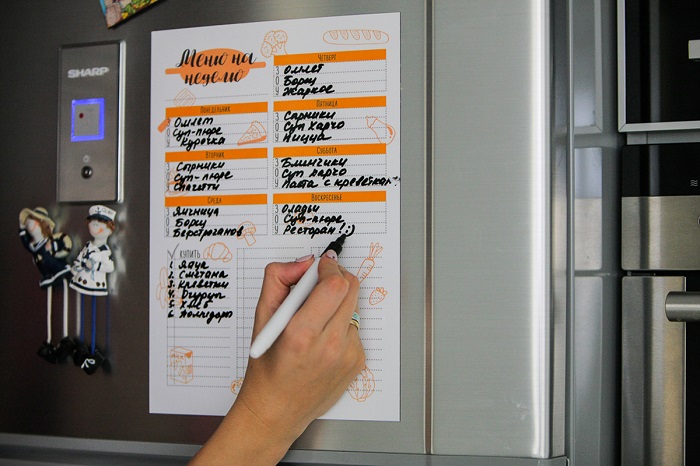 SHARP
Меню на
неделю
Понедельник
З Омлет
О Суп-пюре
У Курочка
Вторник
З Сырники
О Суп-пюре
У Спагетти
Среда
З Яичница
О Борщ
У Бефстроганов
Четверг
З Омлет
О Борщ
У Жаркое
Пятница
З Сырники
О Суп Харчо
У Пицца
Суббота
З Блинчики
О Суп харчо
У Паста с креветками
Воскресенье
З Оладьи
О Суп-пюре
У Ресторан! :)
Купить
1. Яйца
2. Сметана
3. Креветки
4. Йогурт
5. Хлеб
6. Помидоры